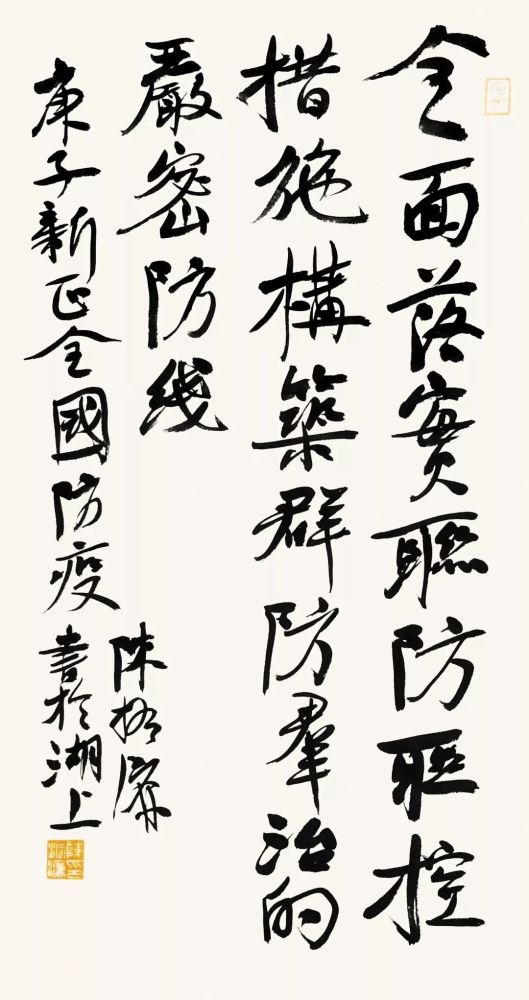 全面落實聯防聯控
措施構築群防羣治的
嚴密防线
庚子新正全國防疫
陳振濂
書於湖上